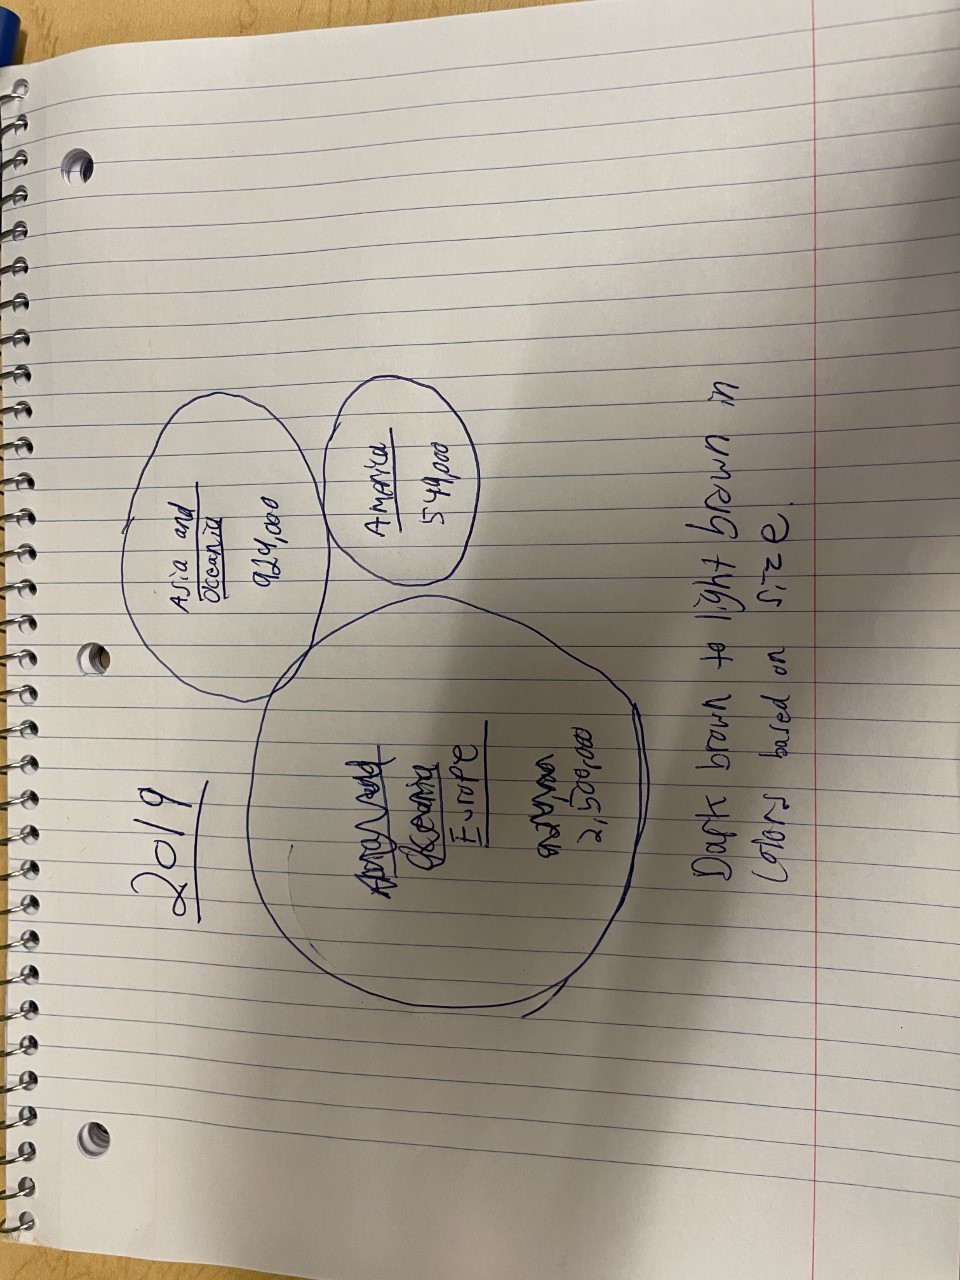 2019
Asia and
Occania
924,000
America
544,000
Occania
Europe
2,500,000
Dark brown to light brown in
colors based on size.